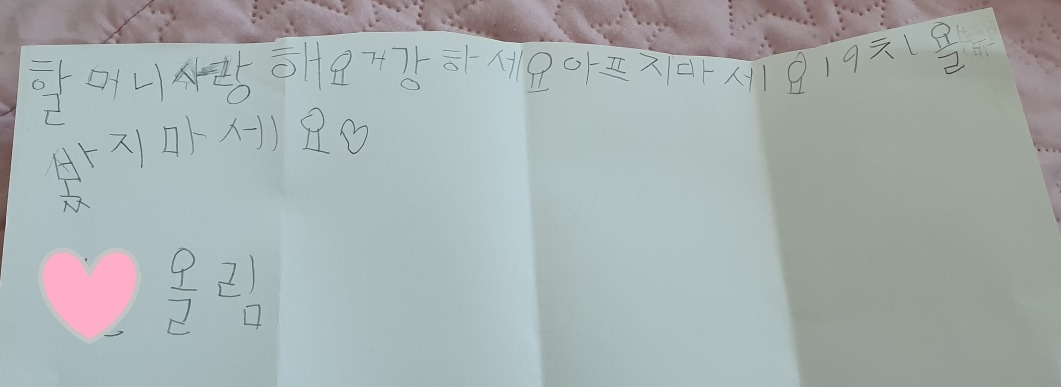 할머니사랑해요거강하세요아프지마세요19
지마세요♡
올림